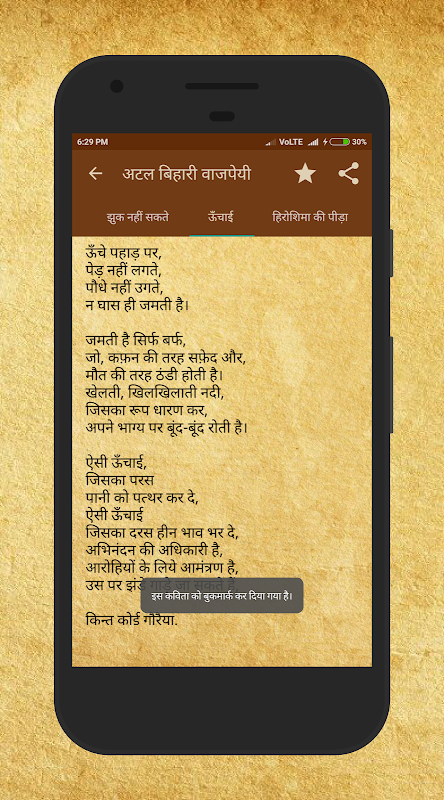 6:29 PM VoLTE 30%
अटल बिहारी वाजपेयी
झुक नहीं सकते ऊँचाई हिरोशिमा की पीड़ा
ऊँचे पहाड़ पर,
पेड़ नहीं लगते,
पौधे नहीं उगते,
न घास ही जमती है।
जमती है सिर्फ बर्फ,
जो, कफ़न की तरह सफ़ेद और,
मौत की तरह ठंडी होती है।
खेलती, खिलखिलाती नदी,
जिसका रूप धारण कर,
अपने भाग्य पर बूंद-बूंद रोती है।
ऐसी ऊँचाई,
जिसका परस
पानी को पत्थर कर दे,
ऐसी ऊँचाई
जिसका दरस हीन भाव भर दे,
अभिनंदन की अधिकारी है,
आरोहियों के लिये आमंत्रण है,
उस पर झंडे गाड़े जा सकते हैं,
इस कविता को बुकमार्क कर दिया गया है।
किन्त कोई गौरैया.